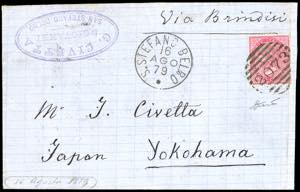 Via Brindisi
G. CIVETTA
S. STEFANO BELBO
16
AGO
79
2073
M. I. Civetta
Japon Yokohama
16 Agosto 1879